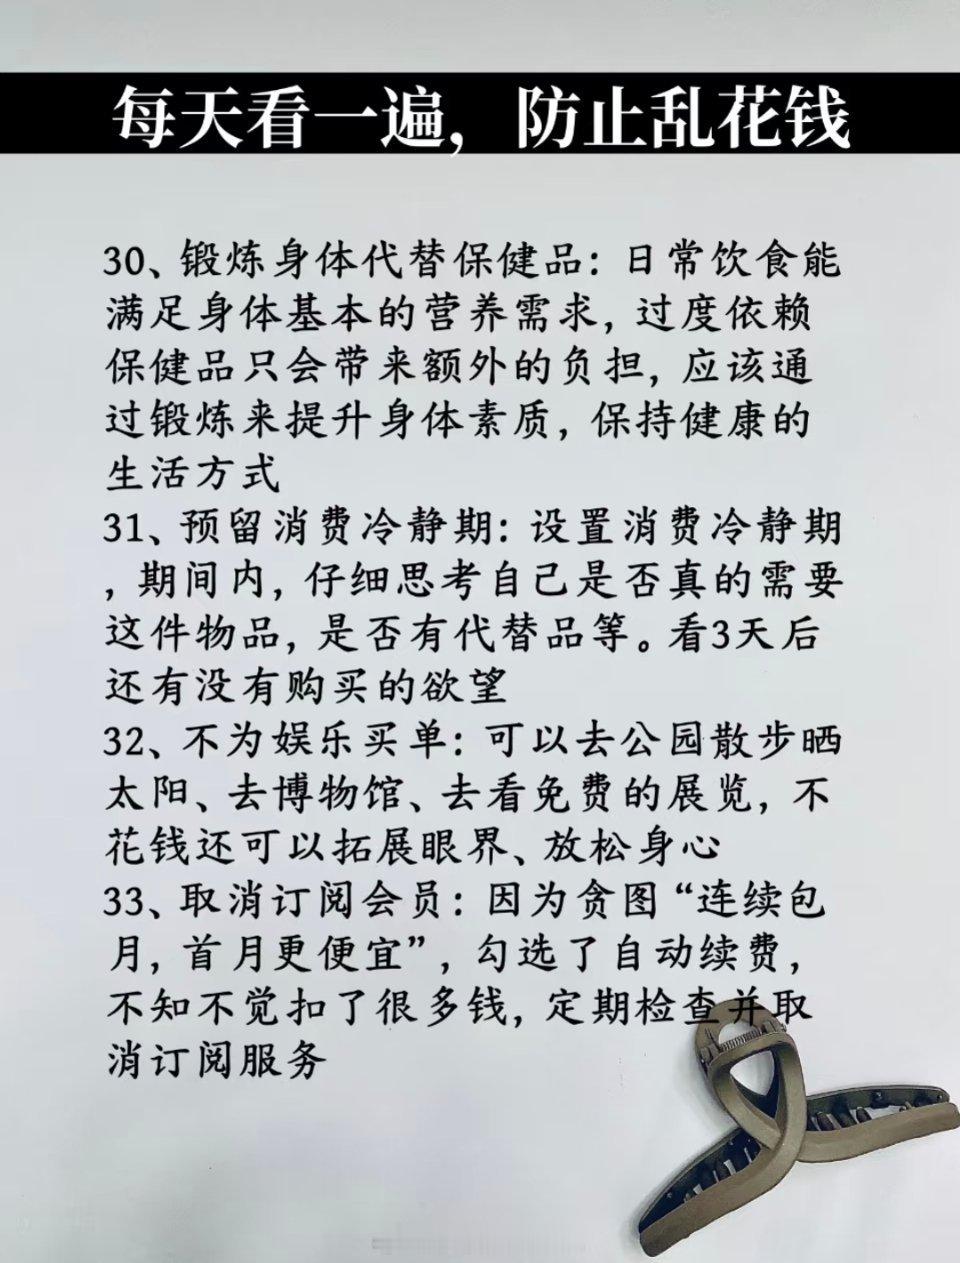 每天看一遍，防止乱花钱
30、锻炼身体代替保健品：日常饮食能
满足身体基本的营养需求，过度依赖
保健品只会带来额外的负担，应该通
过锻炼来提升身体素质，保持健康的
生活方式
31、预留消费冷静期：设置消费冷静期
，期间内，仔细思考自己是否真的需要
这件物品，是否有代替品等。看3天后
还有没有购买的欲望
32、不为娱乐买单：可以去公园散步晒
太阳、去博物馆、去看免费的展览，不
花钱还可以拓展眼界、放松身心
33、取消订阅会员：因为贪图“连续包
月，首月更便宜”，勾选了自动续费，
不知不觉扣了很多钱，定期检查并取
消订阅服务